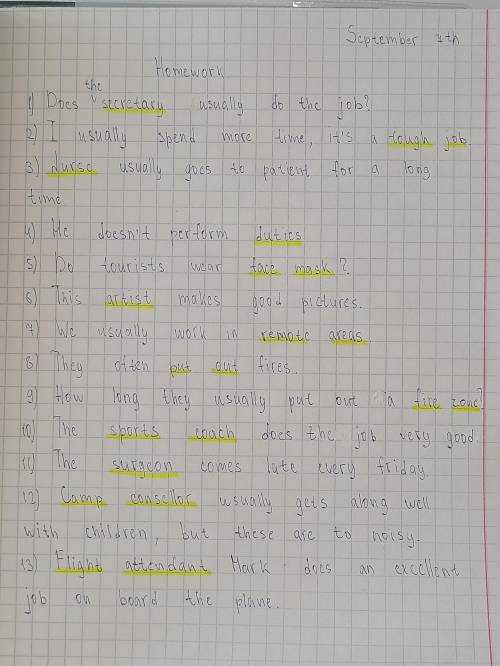 September 7th
Homework
the
1) Does secretary usually do the job?
2) I usually spend more time, it's a tough job.
3) Nurse usually goes to patient for a long
time
4) He doesn't perform duties
5) Do tourists wear face mask?
6) This artist makes good pictures.
7) We usually work in remote areas
8) They often put out fires.
9) How long they usually put out in fire zone?
10) The sports coach does the job very good.
11) The surgeon comes late every friday.
12) Camp consellor usually gets along well
with children, but these are to noisy.
13) Flight attendant Mark does an excellent
job on board the plane.